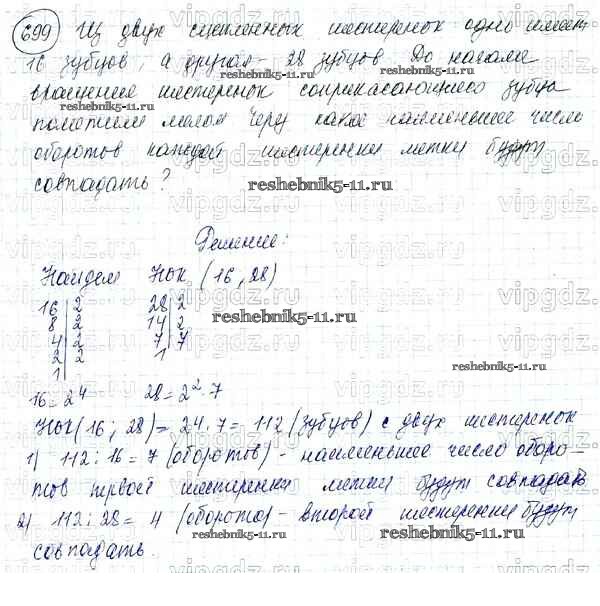 699 Из двух сцепленных шестеренок одна имеет
16 зубцов, а другая - 28 зубцов До начала
вращения шестеренок соприкасающиеся зубцы
пометили мелом Через какое наименьшее число
оборотов каждой шестеренки метки будут
совпадать?
reshebnik5-11.ru
Решение:
Найдем НОК (16, 28)
16 | 2 28 | 2
8 | 2 14 | 2
4 | 2 7 | 7
2 | 2 1
1
16 = 2⁴ 28 = 2² · 7
НОК (16; 28) = 24 · 7 = 112 (зубцов) с двух шестеренок
1) 112 : 16 = 7 (оборотов) - наименьшее число оборо-
тов первой шестеренки метки будут совпадать
2) 112 : 28 = 4 (оборота) - второй шестеренки будут
совпадать.